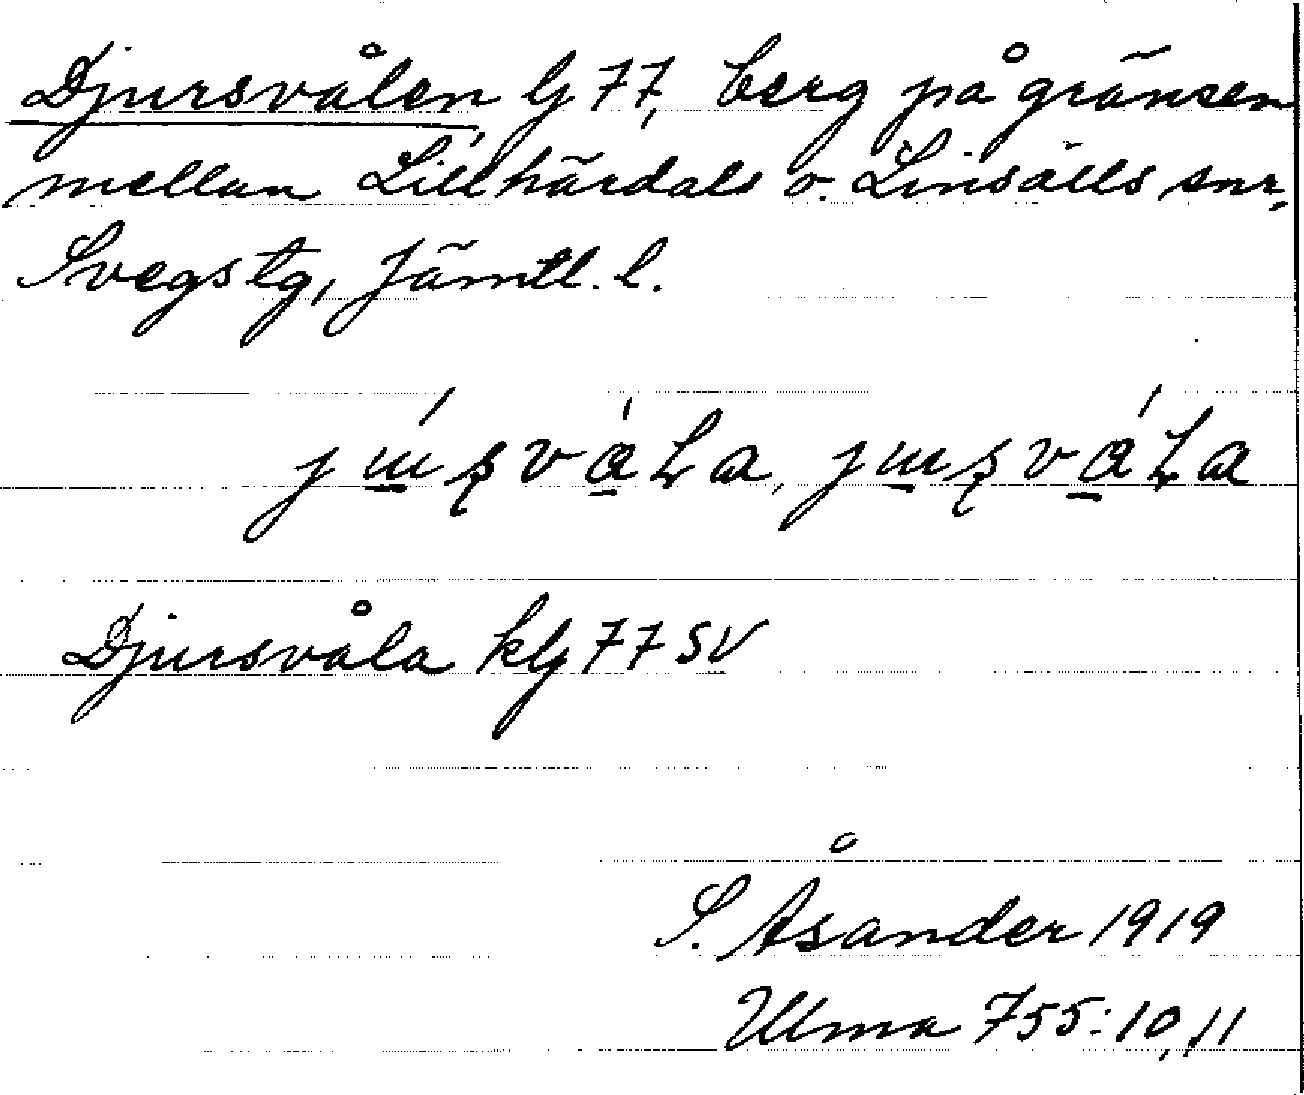 Djursvålen G 77, berg på gränsen
mellan Lillhärdals o. Linsälls snr,
Svegs tg, Jämtl. l.
Djursvåla kG 77 SV
S. Åsander 1919
Ulma 755:10,11